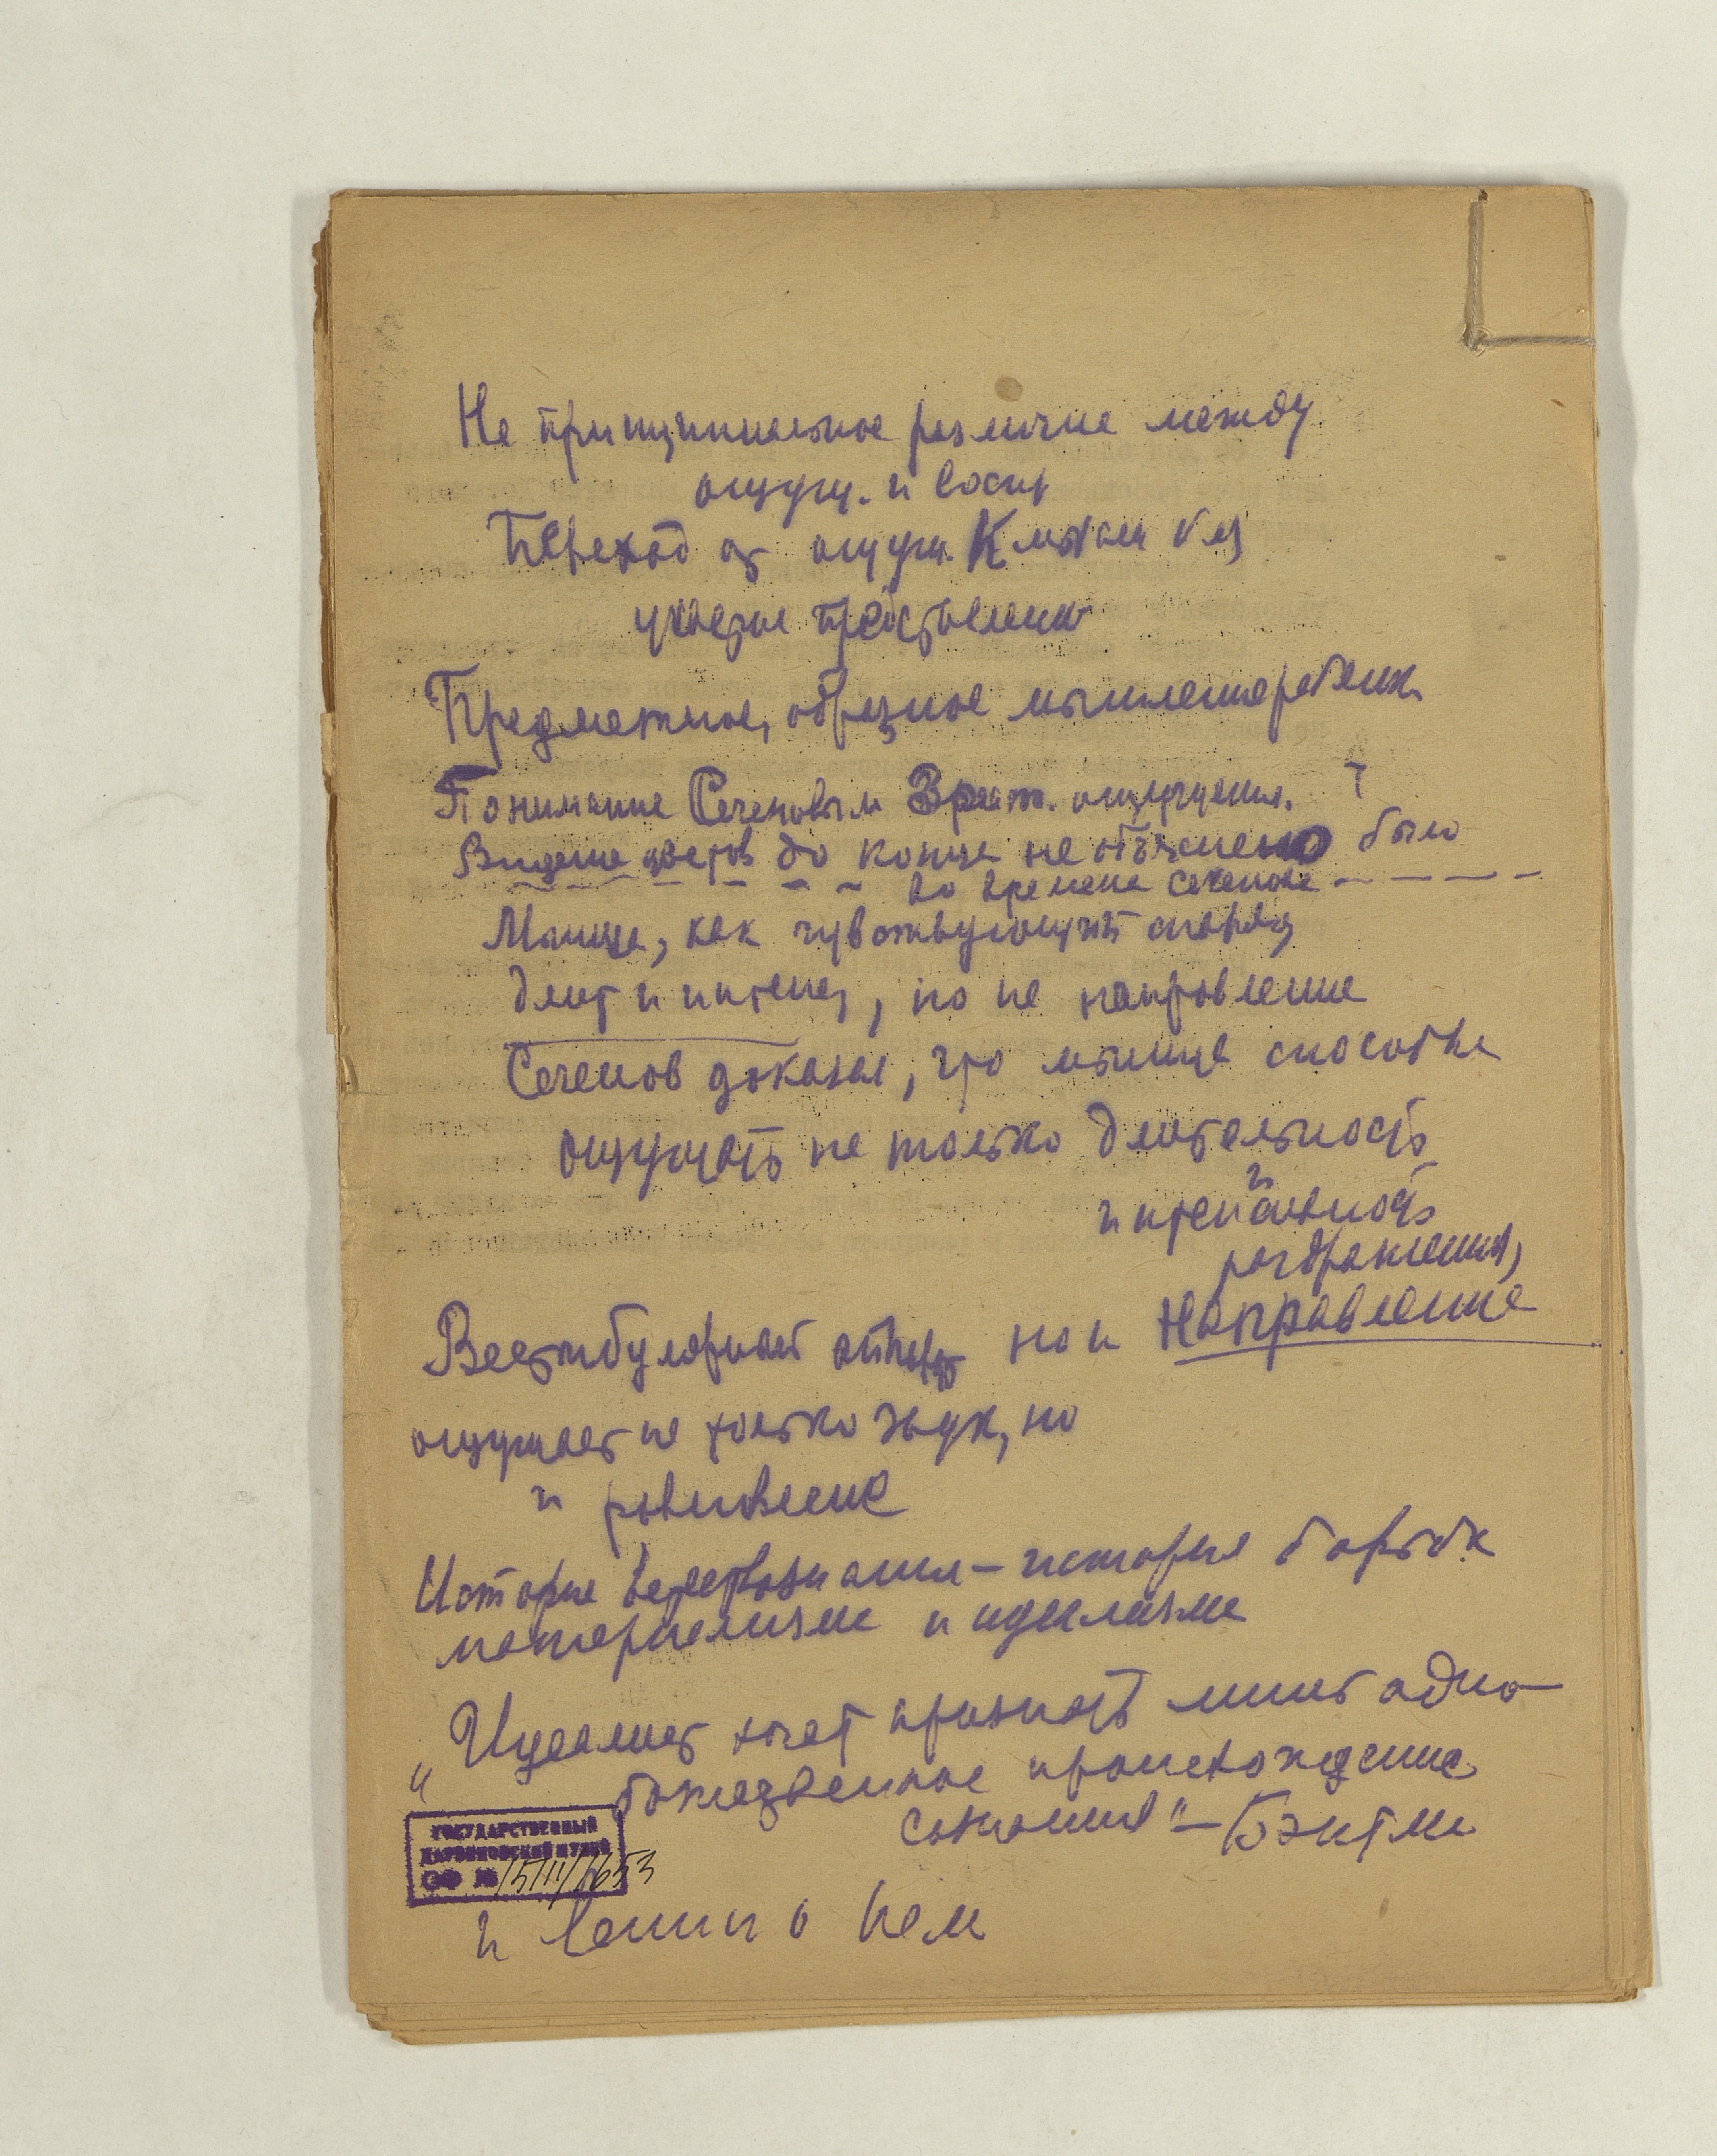 Не принципиальное различие между
ощущ. и восп
Переход от ощущ. к мысли без
участия представлени
Предметное, образное мышление ребенка
Понимание Сеченовым Зрит. ощущения.
Видение цветов до конца не объяснено было
во времена Сеченова
Мышца, как чувствующий снаряд
длит и интенс, но не направление
Сеченов доказал, что мышца способна
ощущать не только длительность
и
интенсивность
раздражения,
но и Направление
Вестибулярный аппарат
ощущает не только звук, но
и равновесие
История – история борьбы
материализма и идеализма
„Идеалист хочет признать лишь одно
божественное происхождение
сознания" –
ГОСУДАРСТВЕННЫЙ
ДАРВИНОВСКИЙ МУЗЕЙ
ОФ № 15111/1653
и Ленин о нем